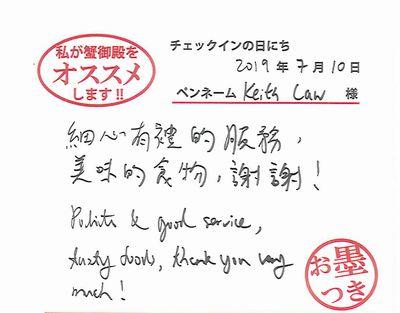 私が蟹御殿を
オススメ
します!!
チェックインの日にち
2019年7月10日
ペンネーム Keith Law 様
細心有禮的服務,
美味的食物,謝謝!
Polite & good service,
tasty foods, thank you very
much!
お墨
つき